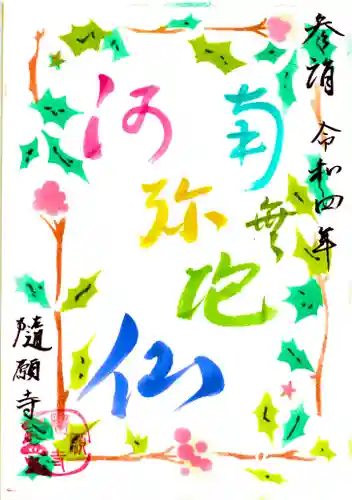 参詣 令和四年
南無
阿弥陀仏
隨願寺